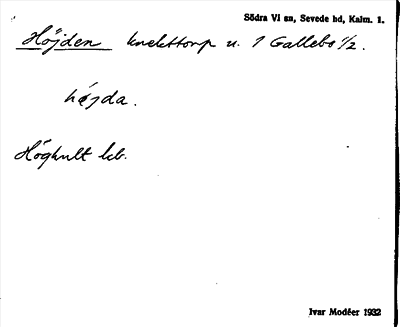 Södra Vi sn, Sevede hd, Kalm. l.
Höjden knekttorp u. 1 Gallebo 1/2.
höjda.
Höghult kb.
Ivar Modéer 1932